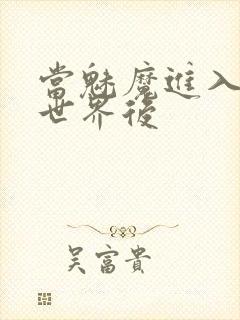 當魅魔進入
世界後
吳富貴